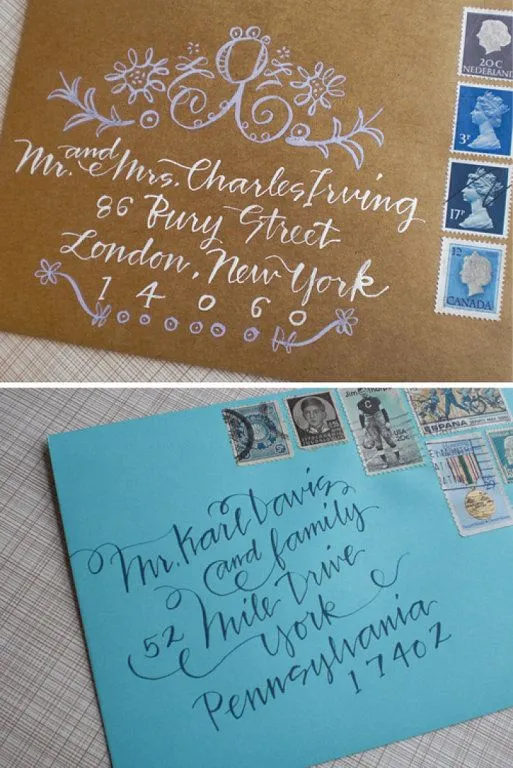 20 C
NEDERLAND
3P
17P
12
CANADA
Mr. and Mrs. Charles Irving
86 Bury Street
London, New York
14060
C
USA
20c
ESPAÑA
Mr. Karl Davis
and family
52 Mile Drive
York
Pennsylvania
17402